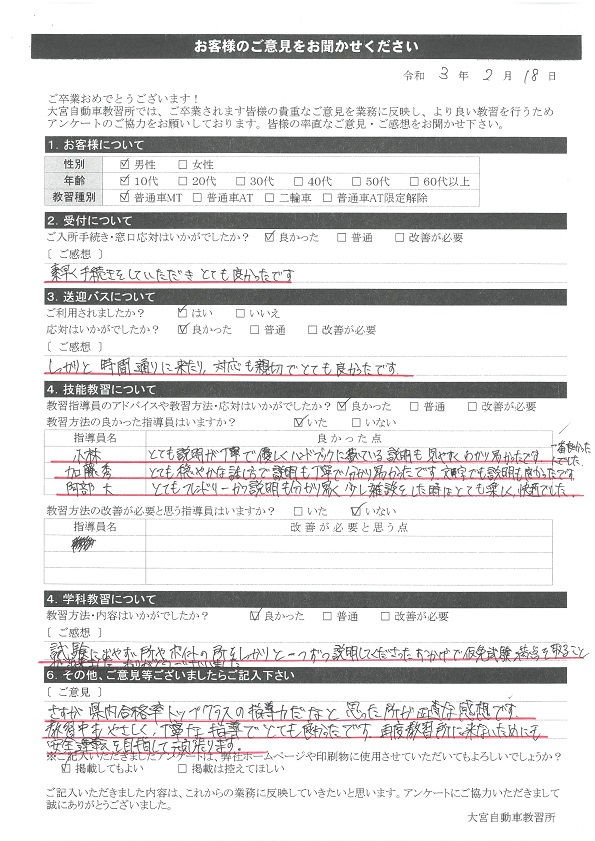 お客様のご意見をお聞かせください
令和 3 年 2 月 18 日
ご卒業おめでとうございます！
大宮自動車教習所では、ご卒業されます皆様の貴重なご意見を業務に反映し、より良い教習を行うため
アンケートのご協力をお願いしております。皆様の率直なご意見・ご感想をお聞かせ下さい。
1. お客様について
性別 ☑ 男性 □ 女性
年齢 ☑ 10代 □ 20代 □ 30代 □ 40代 □ 50代 □ 60代以上
教習種別 ☑ 普通車MT □ 普通車AT □ 二輪車 □ 普通車AT限定解除
2. 受付について
ご入所手続き・窓口応対はいかがでしたか？ ☑ 良かった □ 普通 □ 改善が必要
［ ご感想 ］
素早く手続きをしていただき とても良かったです
3. 送迎バスについて
ご利用されましたか？ ☑ はい □ いいえ
応対はいかがでしたか？ ☑ 良かった □ 普通 □ 改善が必要
［ ご感想 ］
しっかりと 時間通りに来たり、対応も親切でとても良かったです
4. 技能教習について
教習指導員のアドバイスや教習方法・応対はいかがでしたか？ ☑ 良かった □ 普通 □ 改善が必要
教習方法の良かった指導員はいますか？ ☑ いた □ いない
指導員名 良かった点
小林 とても説明が丁寧で優しくハンドブックに書いている説明も見やすくわかり易かったです 一番良かった人でした。
加藤秀 とても穏やかな話し方で説明も丁寧で分かり易かったです 文字でも説明も良かったです
阿部 大 とてもフレンドリーかつ説明も分かり易く 少し雑談をした時はとても楽しく、快適でした。
教習方法の改善が必要と思う指導員はいますか？ □ いた ☑ いない
指導員名 改善が必要と思う点
4. 学科教習について
教習方法・内容はいかがでしたか？ ☑ 良かった □ 普通 □ 改善が必要
［ ご感想 ］
試験に出やすい所やポイントの所をしっかりと一つずつ説明してくださったおかげで仮免試験満点を取ること
6. その他、ご意見等ございましたらご記入下さい
［ ご意見 ］
さすが 県内合格率トップクラスの指導力だなと 思った所が正直な感想です
教習中もやさしく、丁寧な 指導で とても良かったです 再度教習所に来ないためにも
安全運転を目指して頑張ります。
※ご記入いただきましたアンケートは、弊社ホームページや印刷物に使用させていただいてもよろしいでしょうか？
☑ 掲載してもよい □ 掲載は控えてほしい
ご記入いただきました内容は、これからの業務に反映していきたいと思います。アンケートにご協力いただきまして
誠にありがとうございました。
大宮自動車教習所